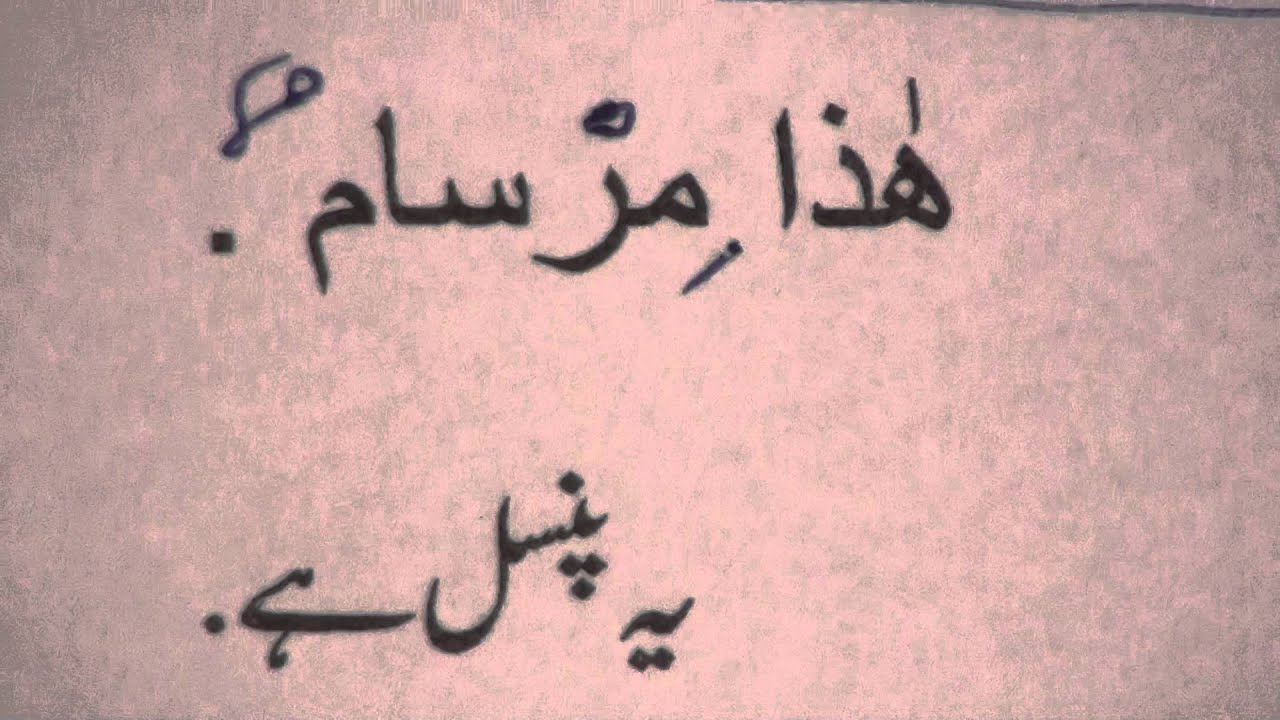 هٰذا مِرْسامٌ .
یہ پنسل ہے.